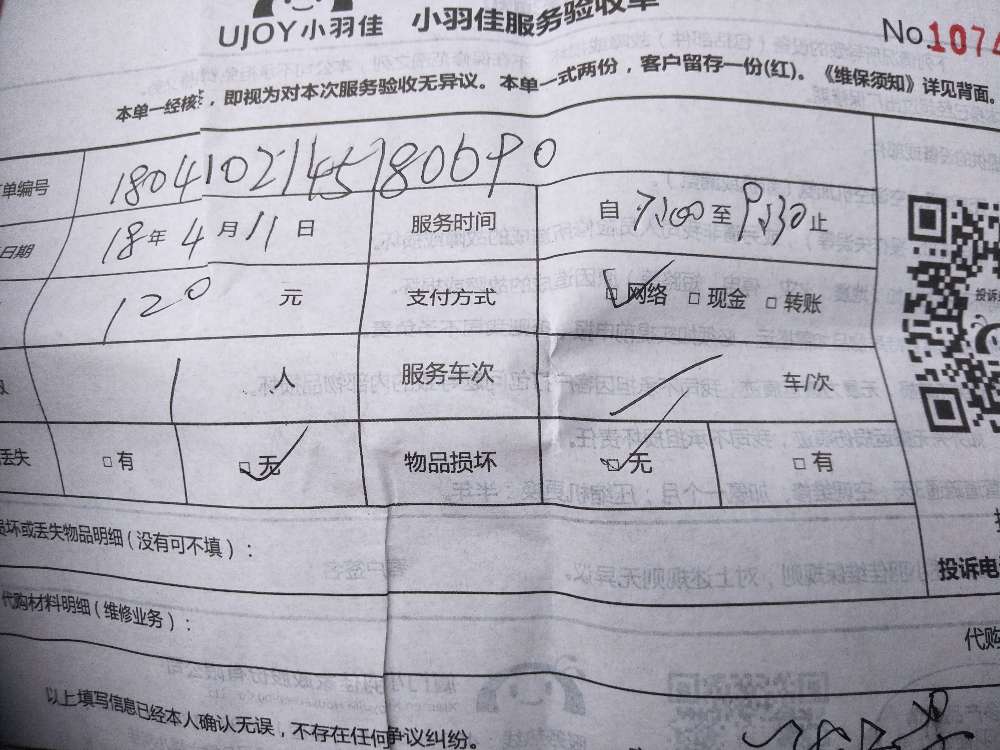 UJOY小羽佳 小羽佳服务验收单
No.1074
本单一经核签，即视为对本次服务验收无异议。本单一式两份，客户留存一份(红)。《维保须知》详见背面。
单编号 180410214518069 0
日期 18年4月11日 服务时间 自 7:00至9:30止
120 元 支付方式 网络 现金 转账
1 人 服务车次 车/次
丢失 有 无 物品损坏 无 有
损坏或丢失物品明细（没有可不填）：
投诉电
代购材料明细（维修业务）：
代购
以上填写信息已经本人确认无误，不存在任何争议纠纷。